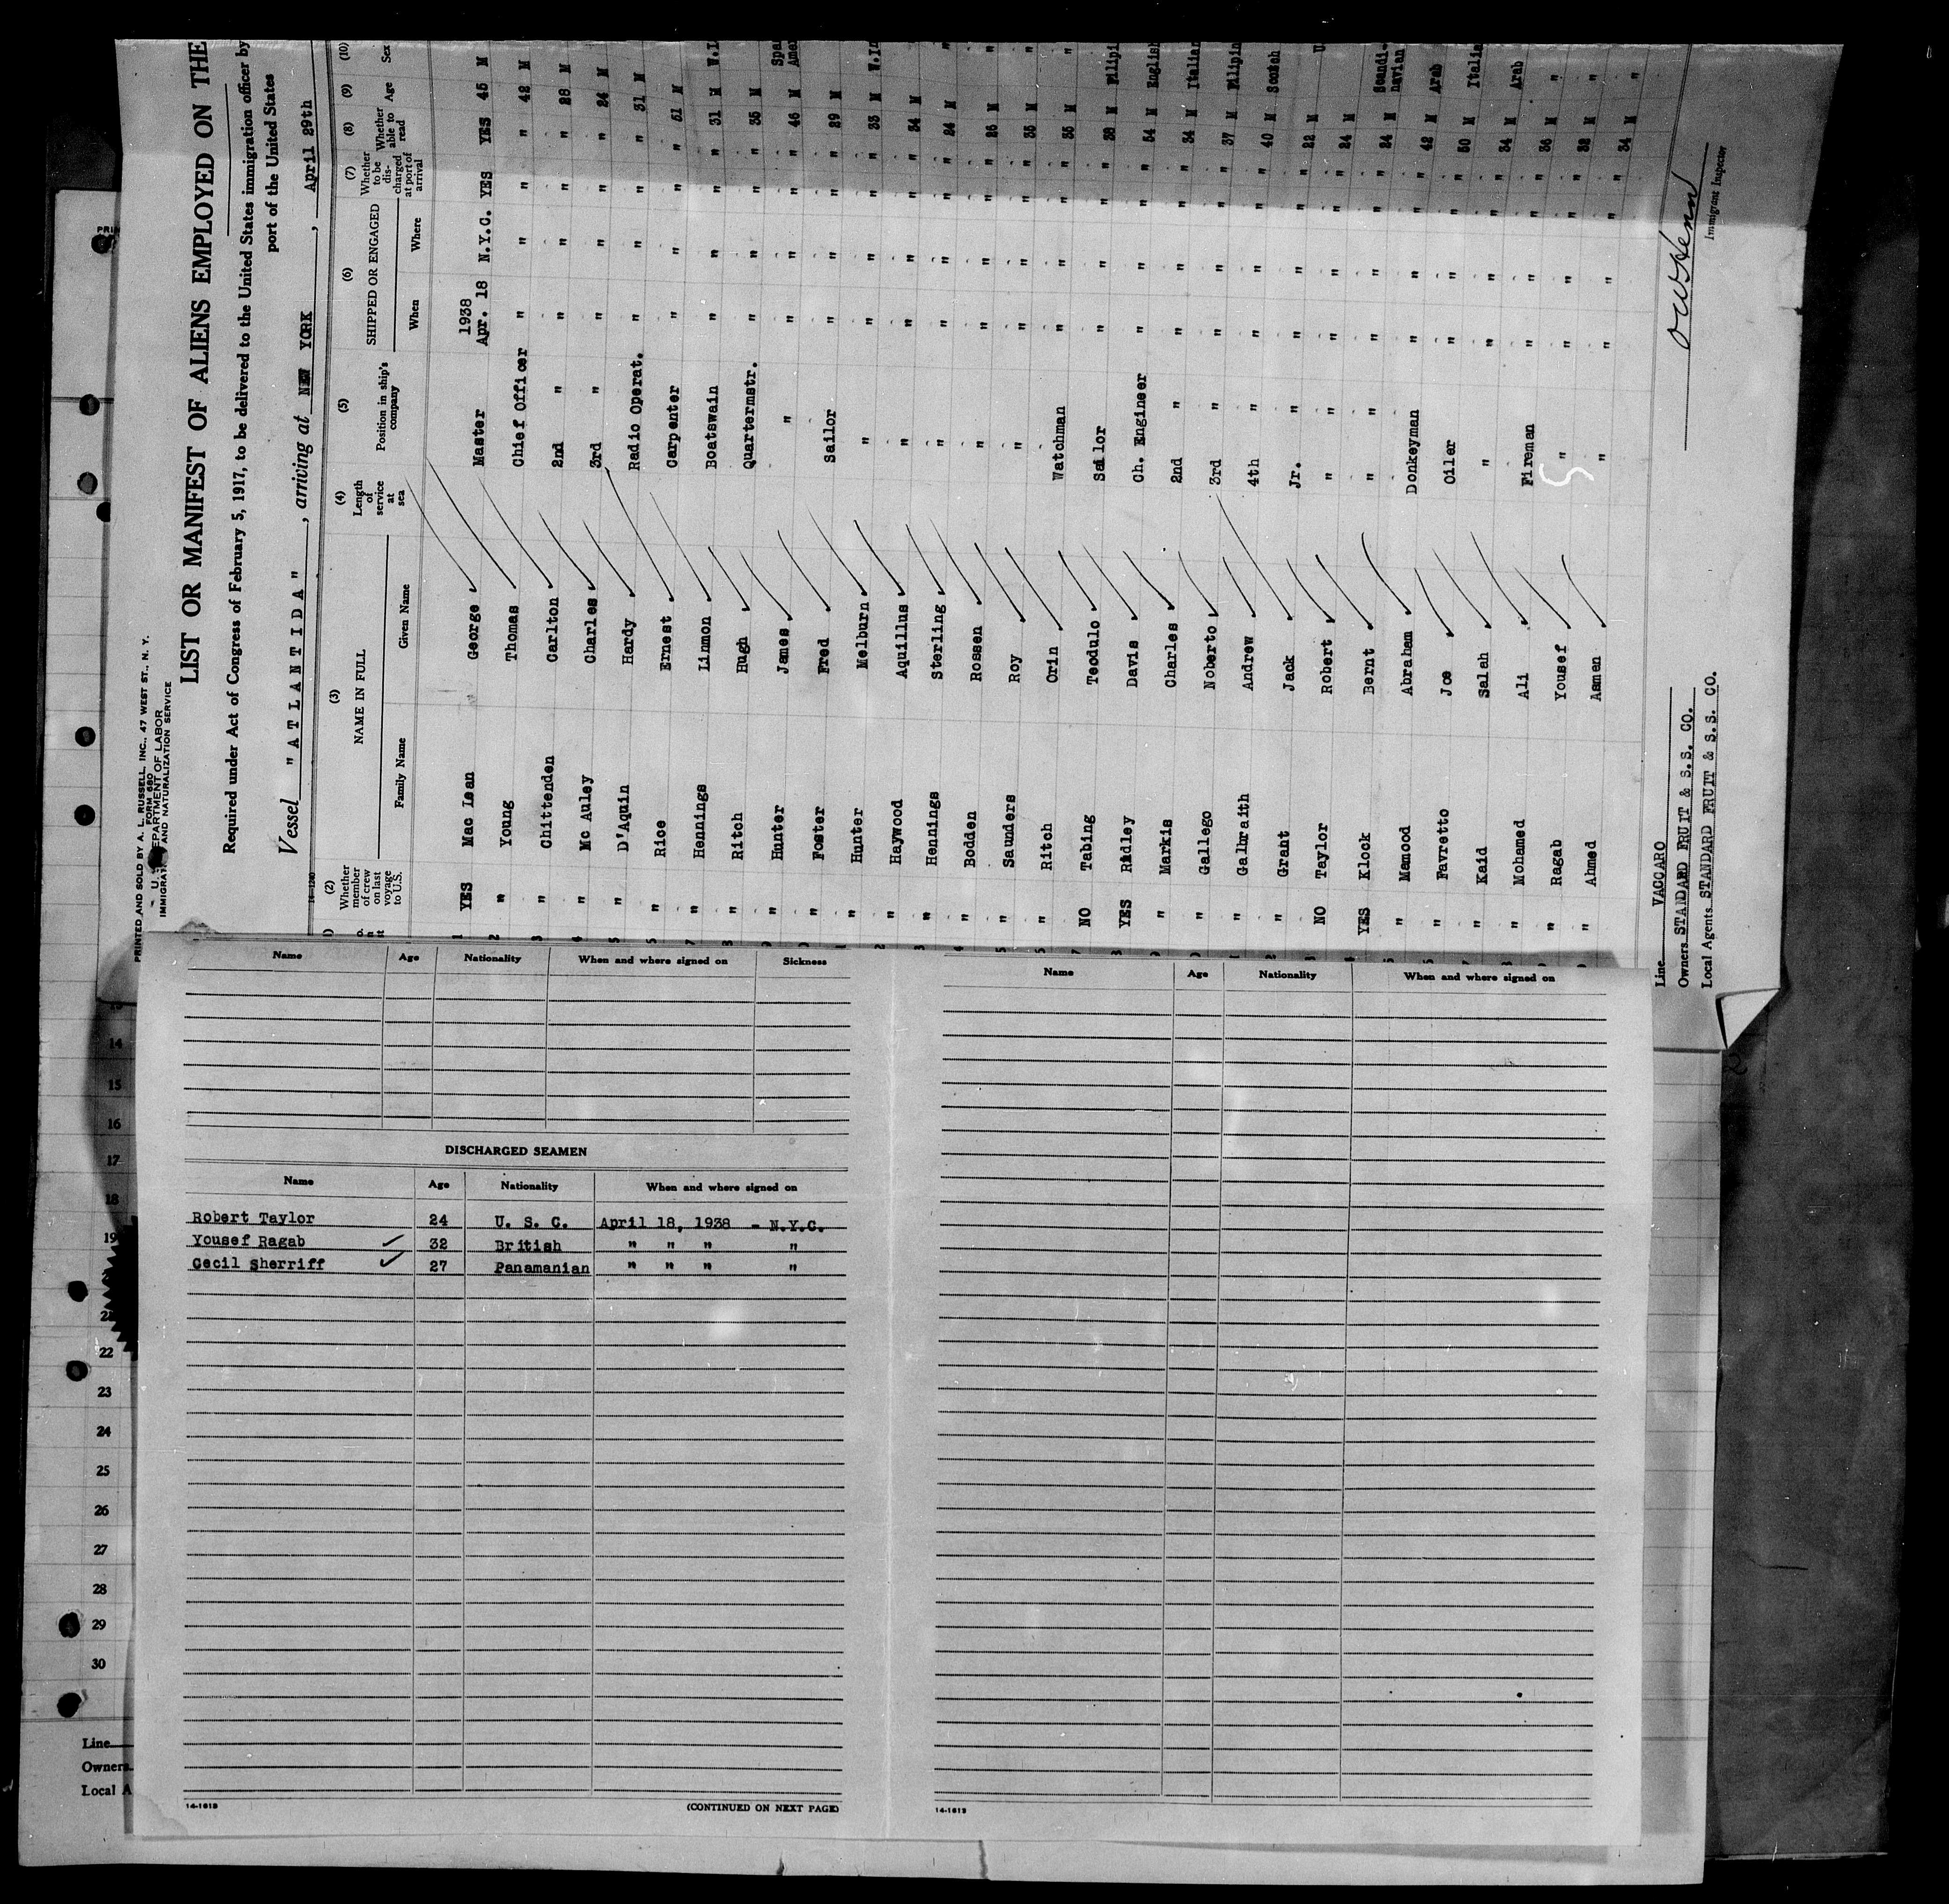 PRINTED AND SOLD BY A. L. RUSSELL, INC., 47 WEST ST., N. Y.
FORM 680
U. S. DEPARTMENT OF LABOR
IMMIGRATION AND NATURALIZATION SERVICE
LIST OR MANIFEST OF ALIENS EMPLOYED ON THE
Required under Act of Congress of February 5, 1917, to be delivered to the United States immigration officer by
port of the United States
Vessel "ATLANTIDA", arriving at NEW YORK, April 29th
(2) (3) (4) (5) (6) (7) (8) (9) (10)
Whether member of crew on last voyage to U.S. NAME IN FULL Family Name Given Name Length of service at sea Position in ship's company SHIPPED OR ENGAGED When Where Whether to be discharged at port of arrival Whether able to read Age Sex
1938
1 YES Mac Lean George Master Apr. 18 N.Y.C. YES YES 45 M
2 " Young Thomas Chief Officer " " " " 42 M
3 " Chittenden Carlton 2nd " " " " " 28 M
4 " Mc Auley Charles 3rd " " " " " 24 M
5 " D'Aquin Hardy Radio Operat. " " " " 31 M
" Rice Ernest Carpenter " " " " 51 M
7 " Hennings Linmon Boatswain " " " " 31 M W.I
8 " Ritch Hugh Quartermstr. " " " " 35 M
9 " Hunter James " " " " " 46 M Spa Amer
" Foster Fred Sailor " " " " 29 M
1 " Hunter Melburn " " " " " 33 M W.In
2 " Haywood Aquillus " " " " " 34 M
3 " Hennings Sterling " " " " " 24 M "
4 " Bodden Rossen " " " " " 26 M "
5 " Saunders Roy " " " " " 35 M "
" Ritch Orin Watchman " " " " 35 M "
7 NO Tabing Teodulo Sailor " " " " 38 M Filipi
YES Ridley Davis Ch. Engineer " " " " 54 M English
" Markis Charles 2nd " " " " " 34 M Italian
" Gallego Noberto 3rd " " " " " 37 M Filipin
1 " Galbraith Andrew 4th " " " " " 40 M Scotch
2 " Grant Jack Jr. " " " " " 22 M
NO Taylor Robert " " " " " 24 M U
YES Klock Bernt " " " " " 24 M Scandi-navian
" Manood Abraham Donkeyman " " " " 42 M Arab
" Favretto Joe Oiler " " " " 50 M Italia
7 " Kaid Salah " " " " " 34 M Arab
" Mohamed Ali Fireman " " " " 36 M "
" Ragab Yousef " " " " " 32 M "
" Ahmed Asmen " " " " " 34 M "
Line VACCARO
Owners STANDARD FRUIT & S.S. CO.
Local Agents STANDARD FRUIT & S.S. CO.
Immigrant Inspector
Name Age Nationality When and where signed on Sickness
DISCHARGED SEAMEN
Name Age Nationality When and where signed on
Robert Taylor 24 U. S. C. April 18, 1938 - N.Y.C.
Yousef Ragab 32 British " " " "
Cecil Sherriff 27 Panamanian " " " "
14-1613 (CONTINUED ON NEXT PAGE)
Name Age Nationality When and where signed on
14-1613
14
15
16
17
18
19
22
23
24
25
26
27
28
29
30
Line
Owners
Local A